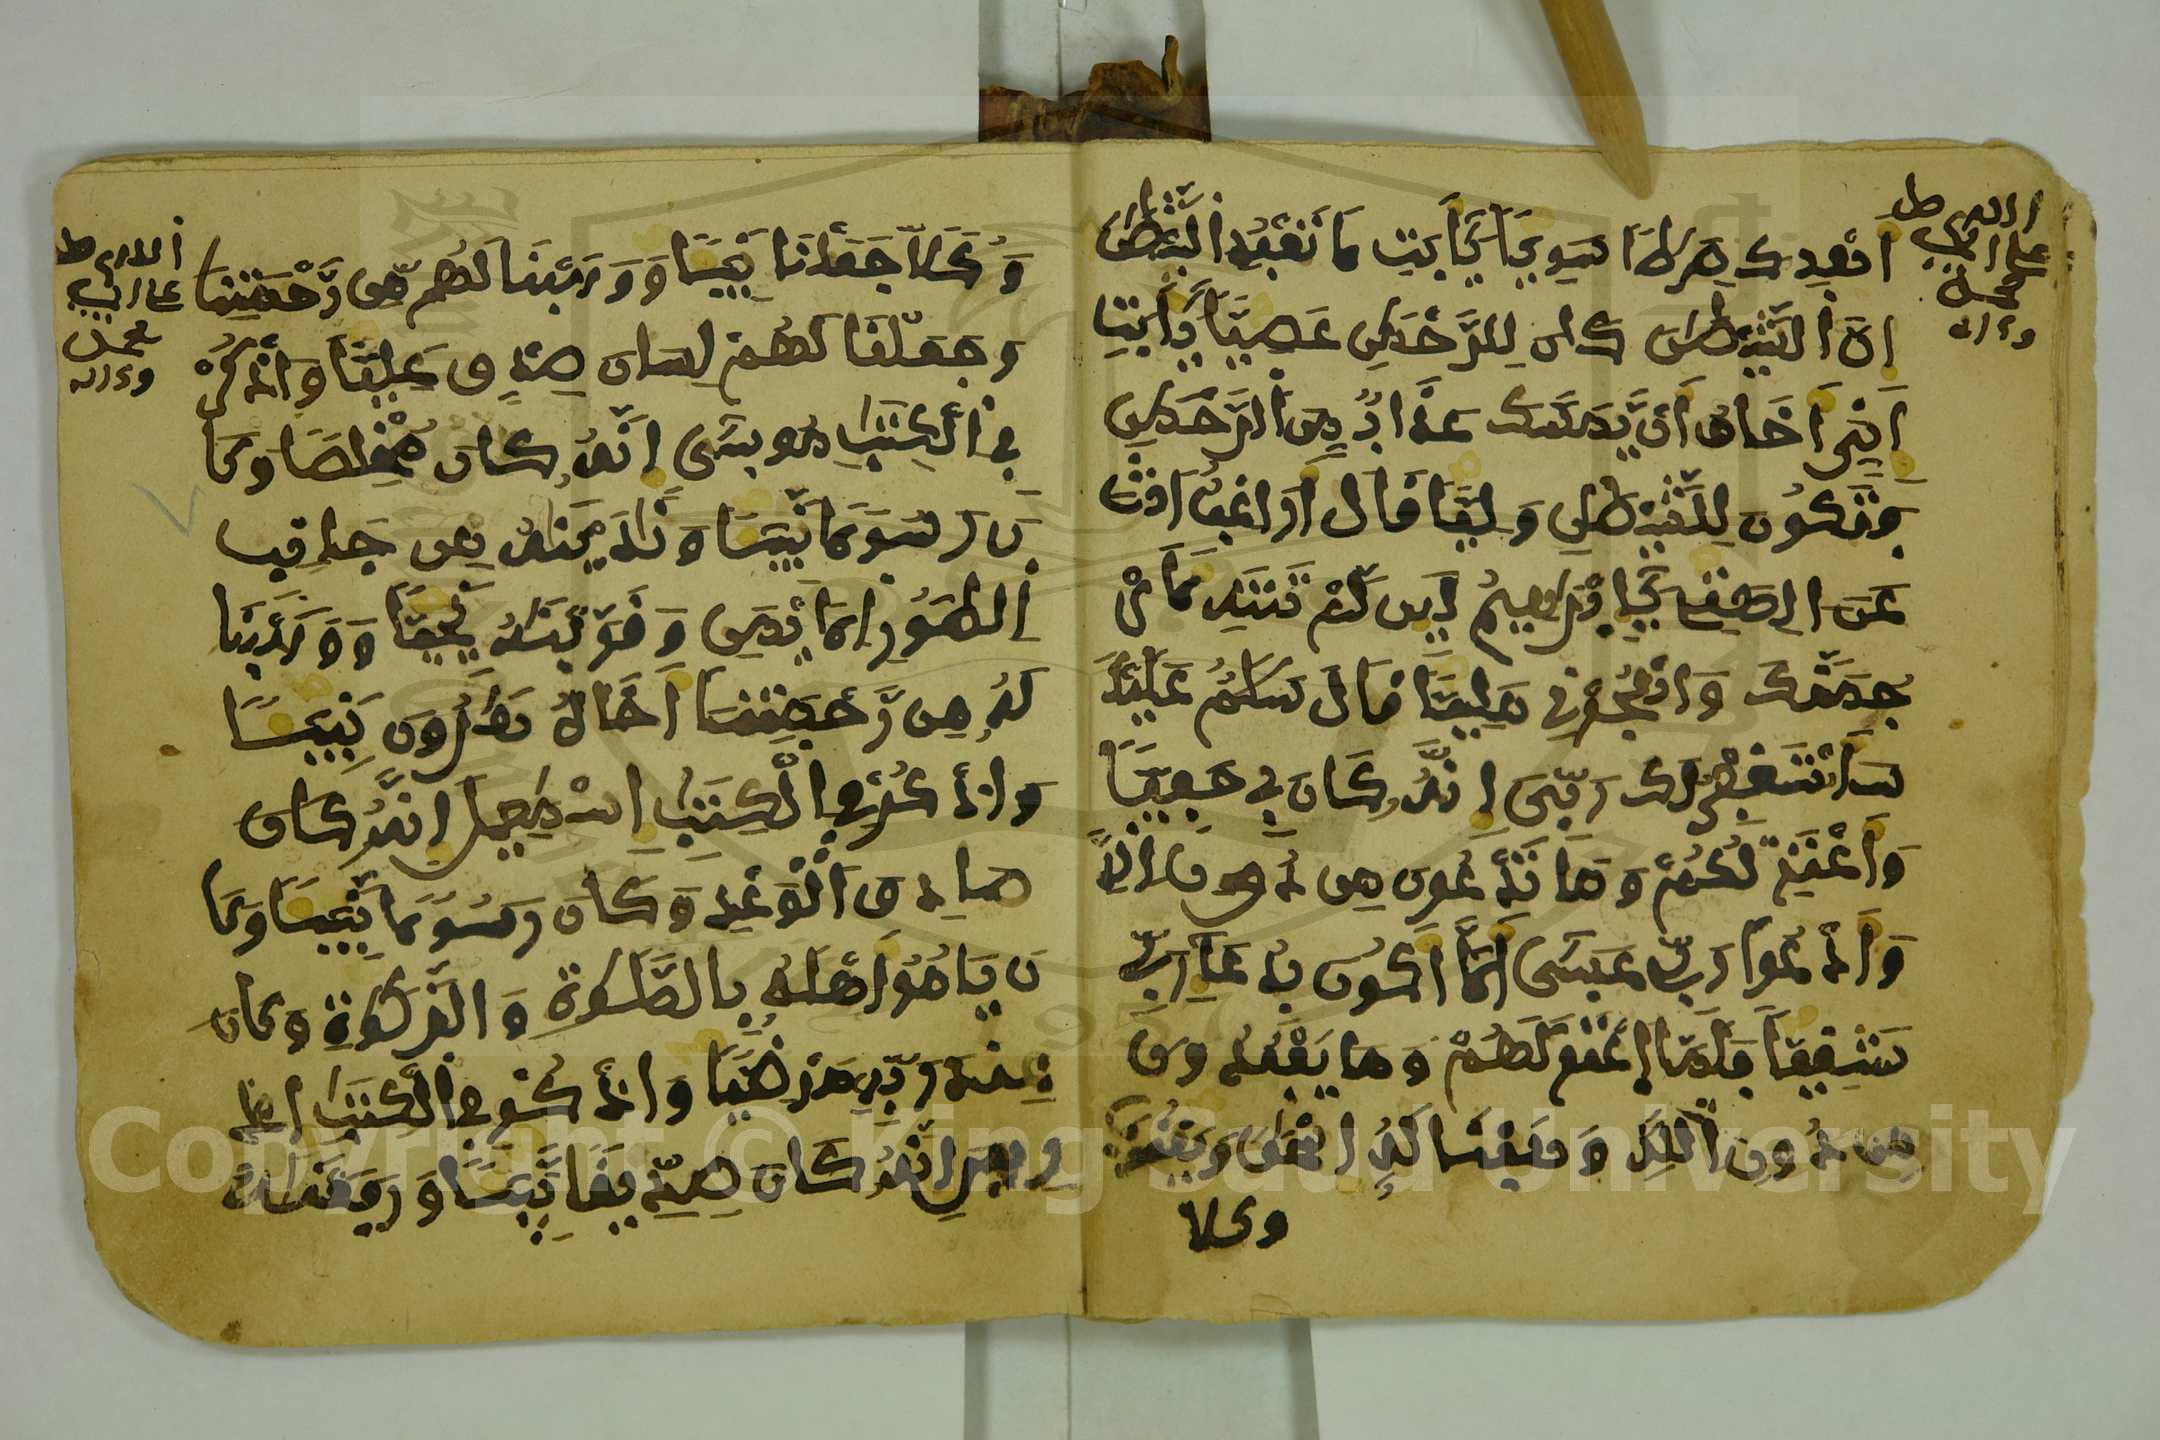 اهدك صرطا سويا يابت لا تعبد الشيطن
ان الشيطن كان للرحمن عصيا يابت
اني اخاف ان يمسك عذاب من الرحمن
فتكون للشيطن وليا قال اراغب انت
عن الهتي يابرهيم لين لم تنته لار
جمنك واهجرني مليا قال سلم عليك
ساستغفر لك ربي انه كان بي حفيا
واعتزلكم وما تدعون من دون الله
وادعوا ربي عسى الا اكون بدعا ربي
شفيا فلما اعتزلهم وما يعبدون
من دون الله وهبنا له اسحق ويعقوب
وكلا
اللهم صل
على النبي
محمد
وءاله
وكلا جعلنا نبيا ووهبنا لهم من رحمتنا
وجعلنا لهم لسان صدق عليا واذكر
في الكتب موسى انه كان مخلصا وكا
ن رسولا نبيا وندينه من جانب
الطور الايمن وقربنه نجيا ووهبنا
له من رحمتنا اخاه هرون نبيا
واذكر في الكتب اسمعيل انه كان
صادق الوعد وكان رسولا نبيا وكا
ن يامر اهله بالصلوة والزكوة وكان
عند ربه مرضيا واذكر في الكتب اد
ريس انه كان صديقا نبيا ورفعنه
اللهم صل
على النبي
محمد
وءاله
Copyright © King Saud University